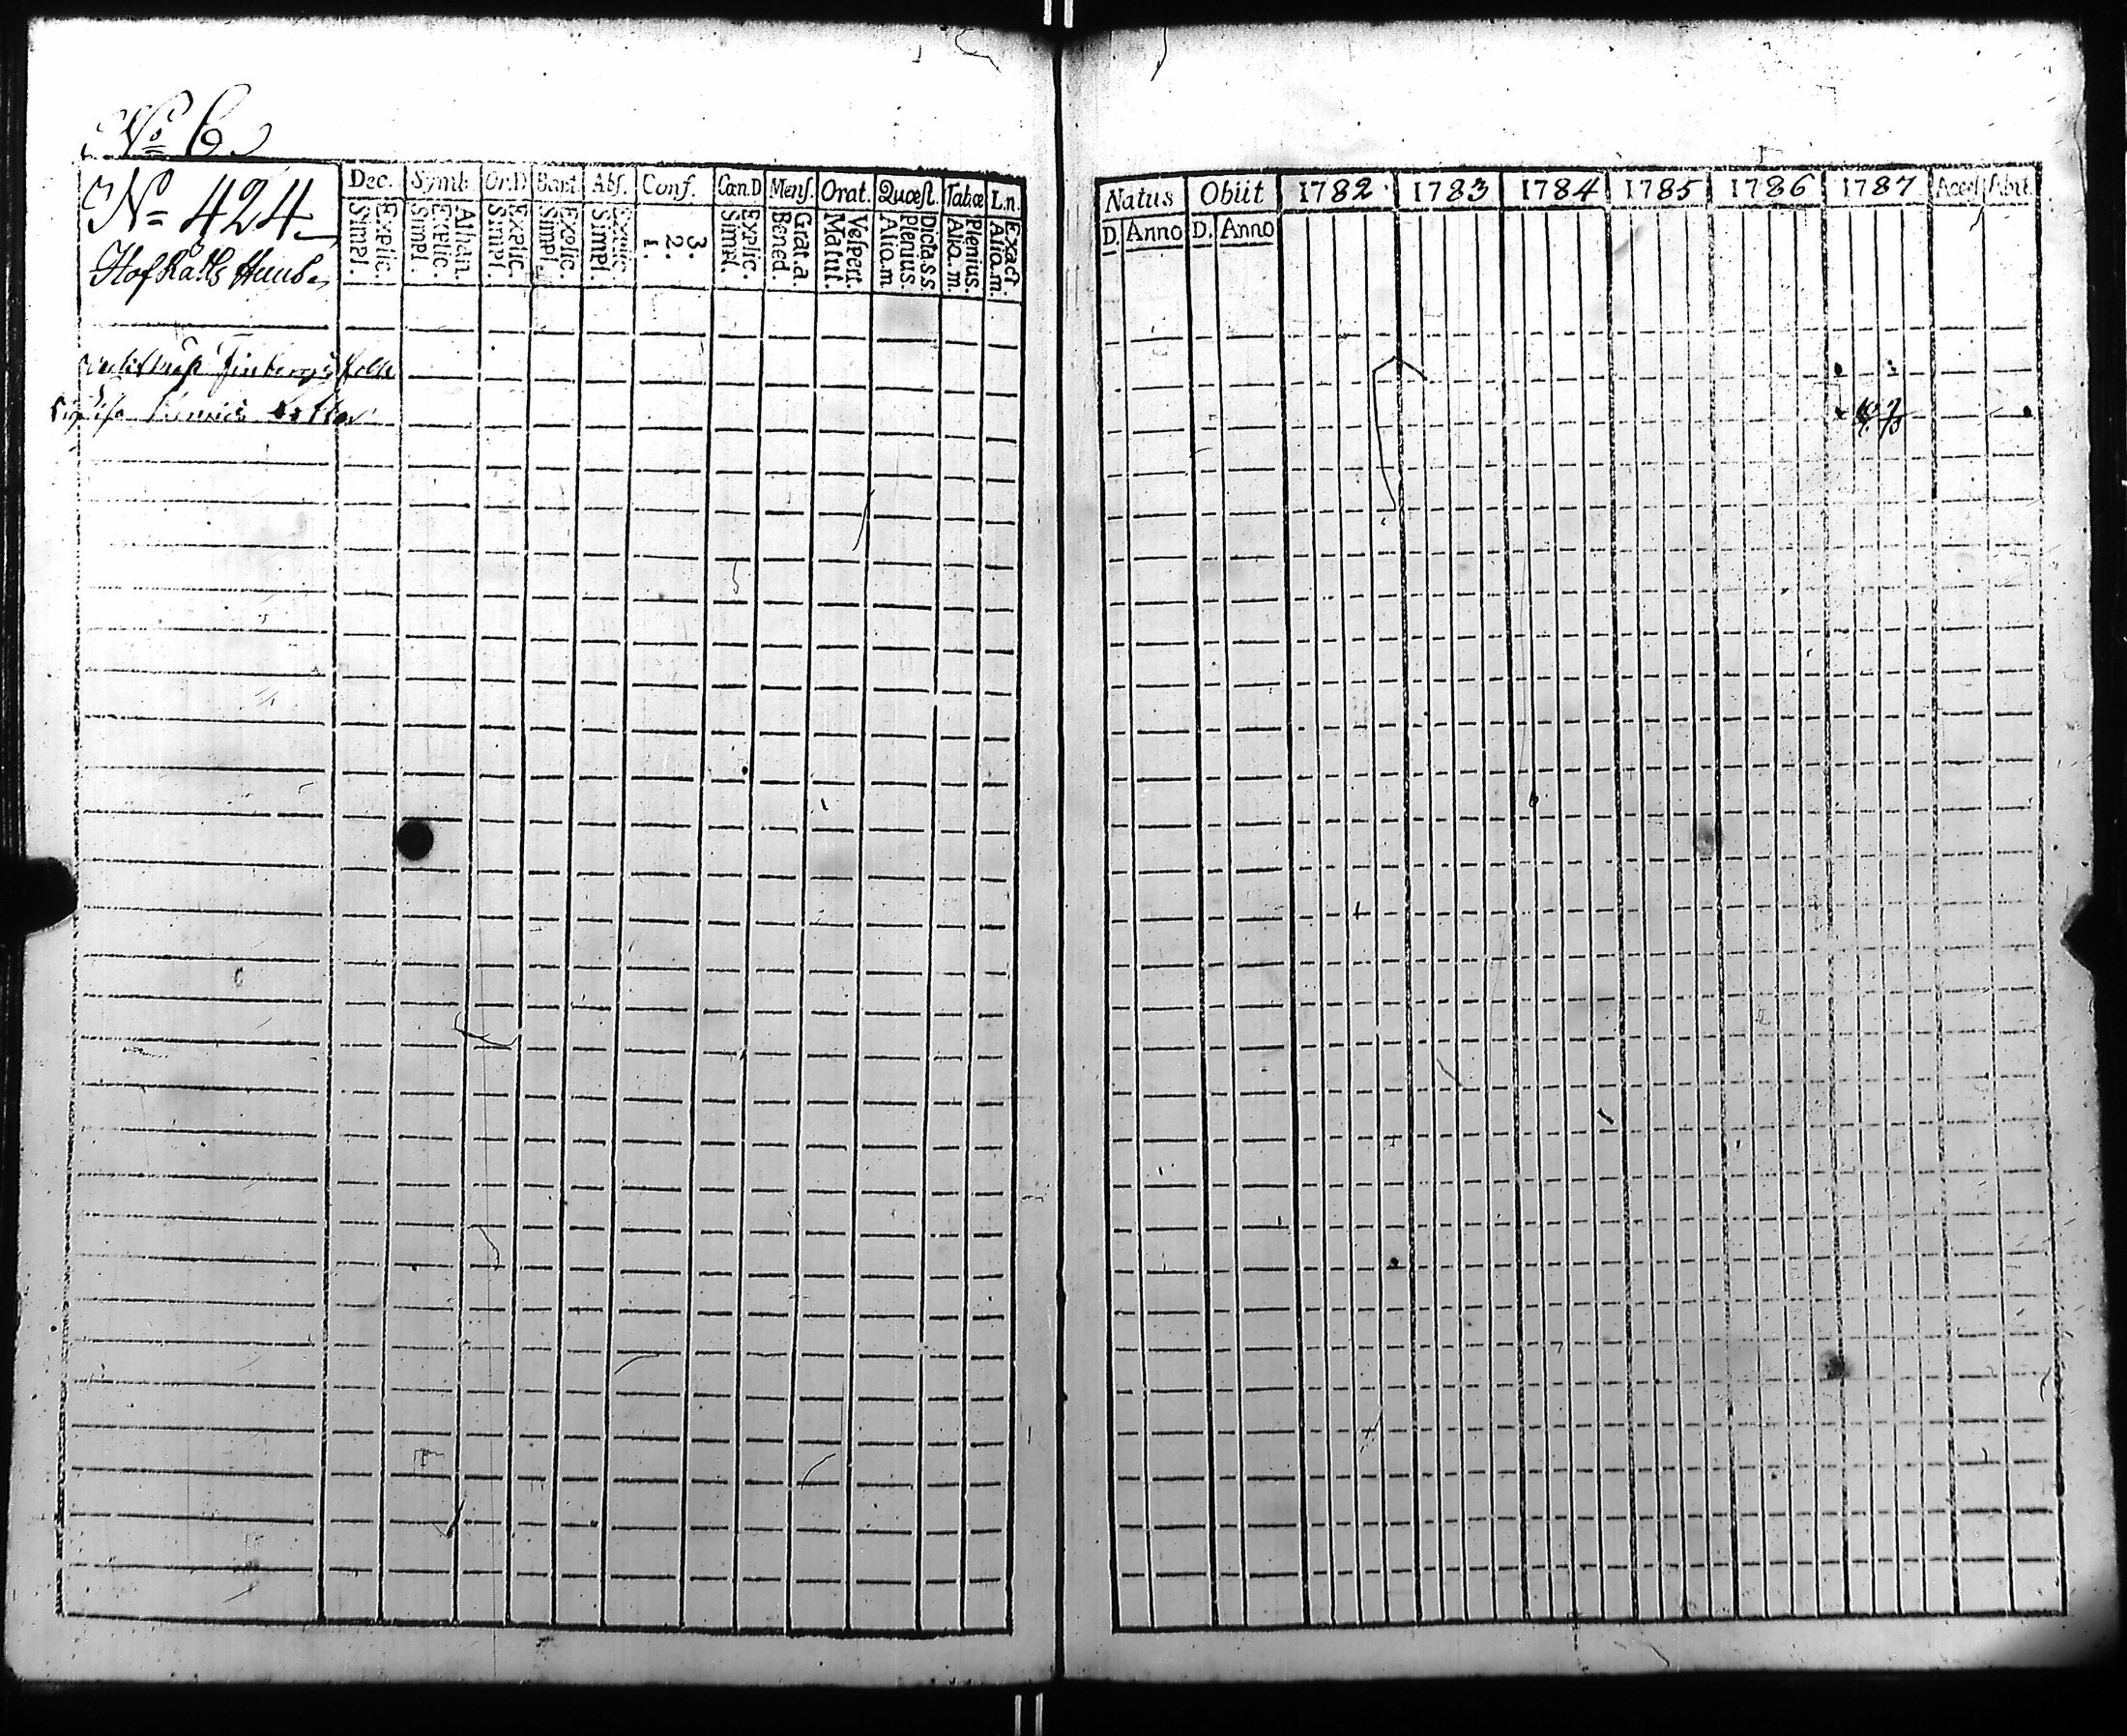 No 6.
No 424.
Dec. Symb. Or.D Bapt. Abs. Conf. Cœn.D Mens. Orat. Quæst. Tabæ L.n.
Simpl. Explic. Simpl. Explic. Athan. Simpl. Explic. Simpl. Explic. Simpl. Explic. 1. 2. 3. Simpl. Explic. Bened. Grat.a. Matut. Vespert. Alio.m. Plenius. Dicta.s.s. Alio.m. Plenius. Alio.m. Exact.
Natus Obiit 1782 1783 1784 1785 1786 1787 Acces. Abit.
D. Anno D. Anno